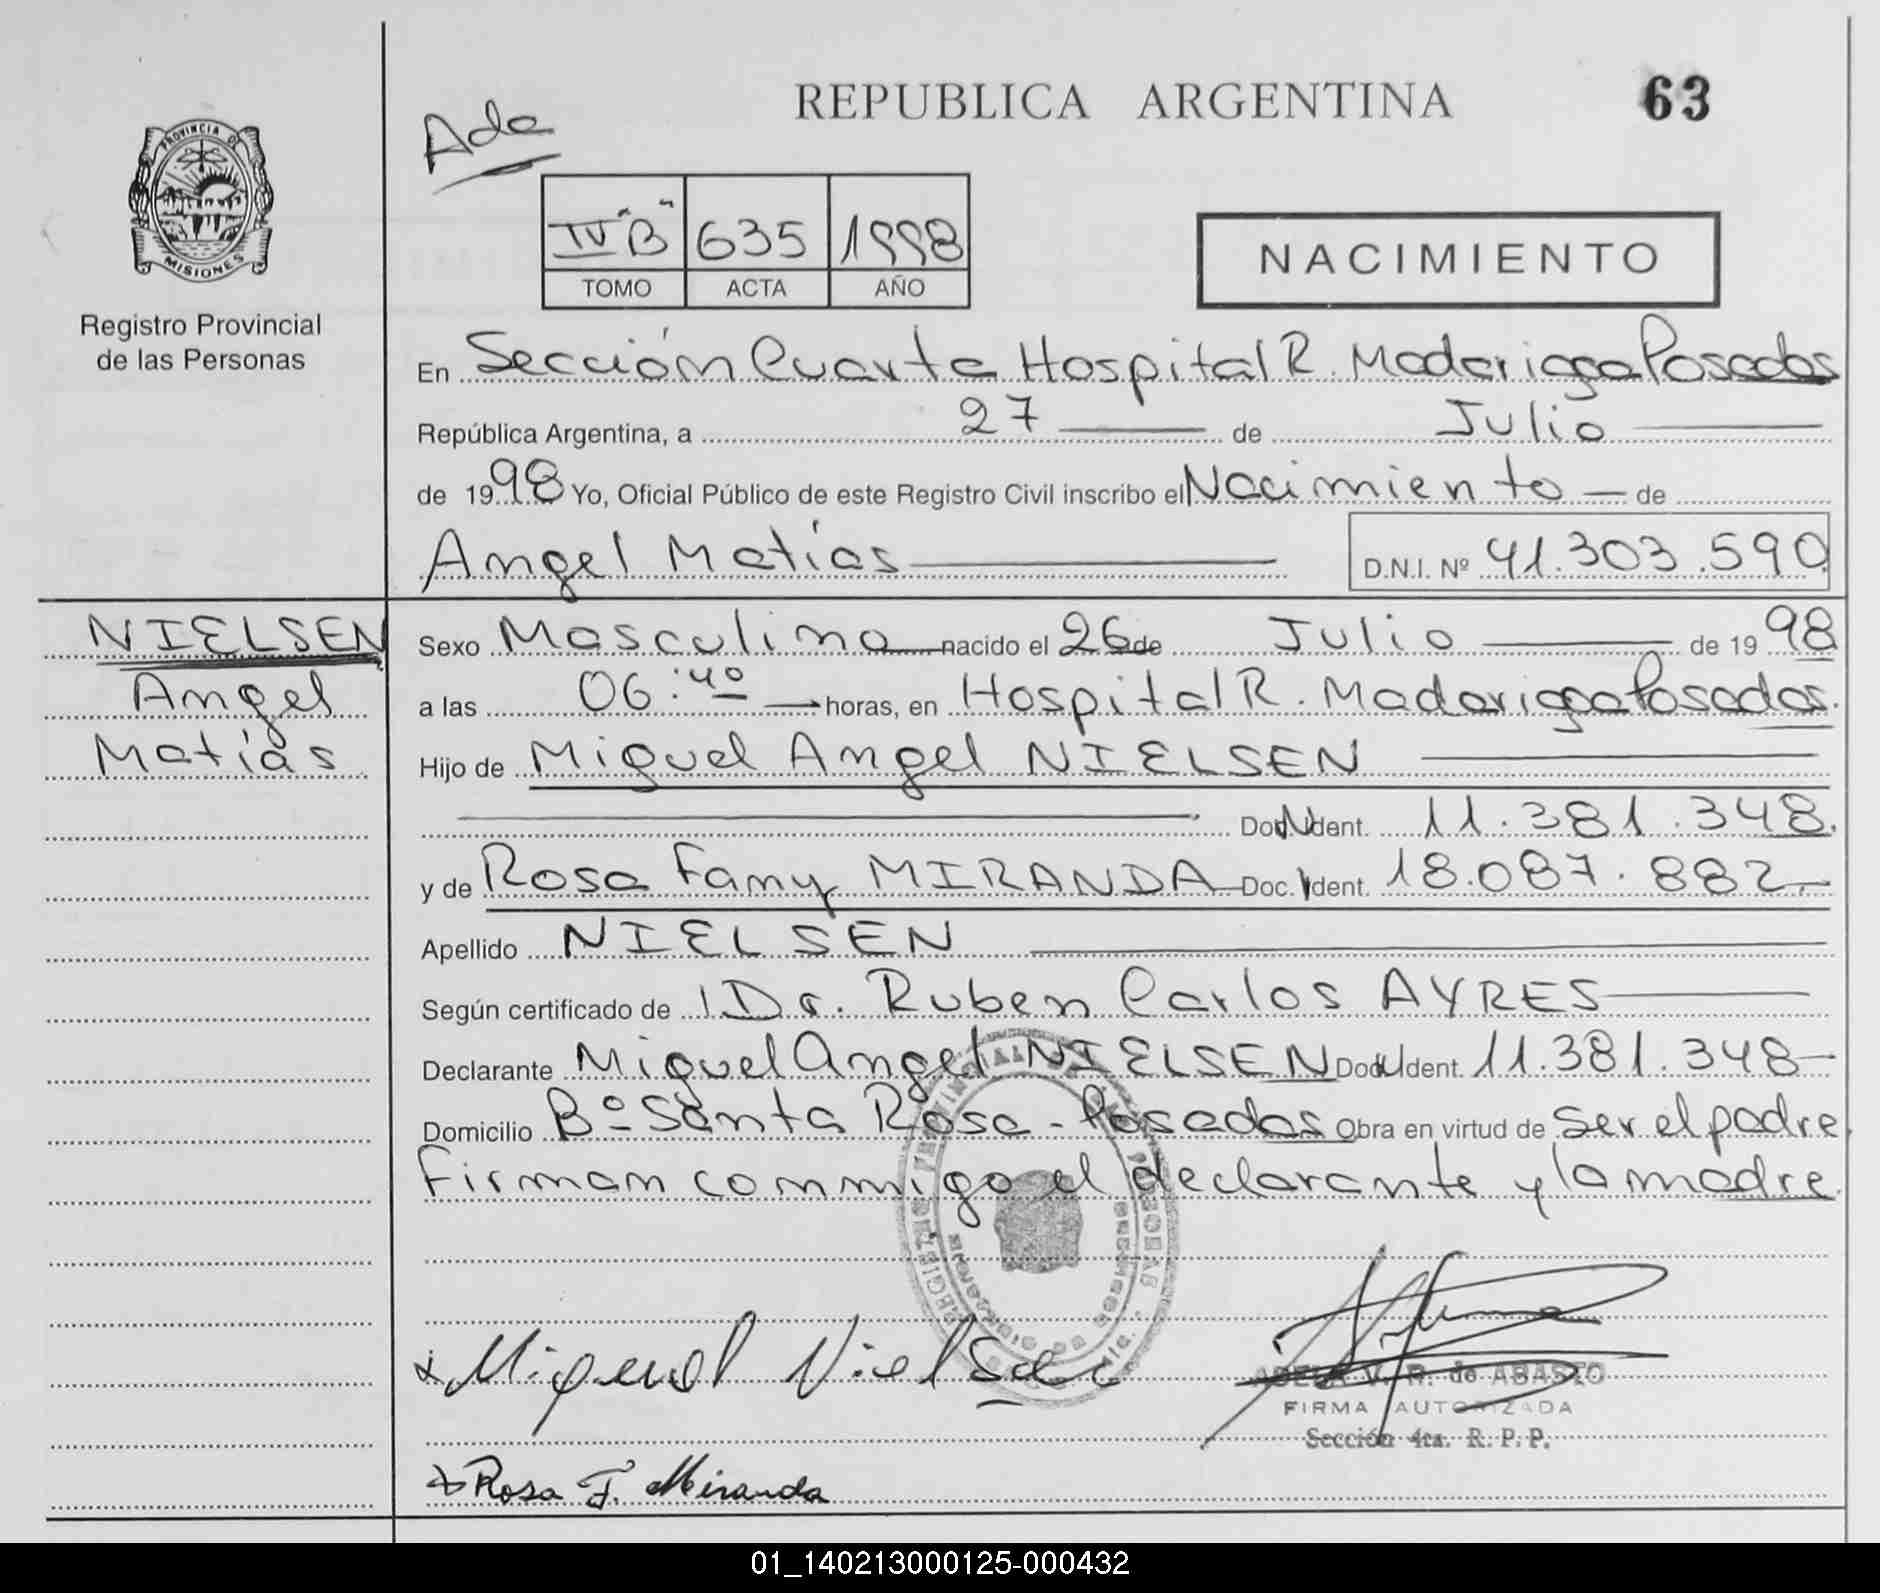 REPUBLICA ARGENTINA
63
Ada
PROVINCIA DE
MISIONES
Registro Provincial
de las Personas
IV "B" 635 1998
TOMO ACTA AÑO
NACIMIENTO
En Sección Cuarta Hospital R. Madariaga Posadas
República Argentina, a 27 de Julio
de 1998 Yo, Oficial Público de este Registro Civil inscribo el Nacimiento de
Angel Matías D.N.I. Nº 41.303.590
NIELSEN
Angel
Matías
Sexo Masculino nacido el 26 de Julio de 1998
a las 06:40 horas, en Hospital R. Madariaga Posadas.
Hijo de Miguel Angel NIELSEN
Doc. Ident. 11.381.348.
y de Rosa Fany MIRANDA Doc. Ident. 18.087.882.-
Apellido NIELSEN
Según certificado de Dr. Ruben Carlos AYRES
Declarante Miguel Angel NIELSEN Doc. Ident. 11.381.348-
Domicilio Bº Santa Rosa - Posadas Obra en virtud de ser el padre.
Firman conmigo el declarante y la madre.
Miguel Nielsen
ADELA V. R. de ABASTO
FIRMA AUTORIZADA
Sección 4ta. R. P. P.
Rosa F. Miranda
01_140213000125-000432